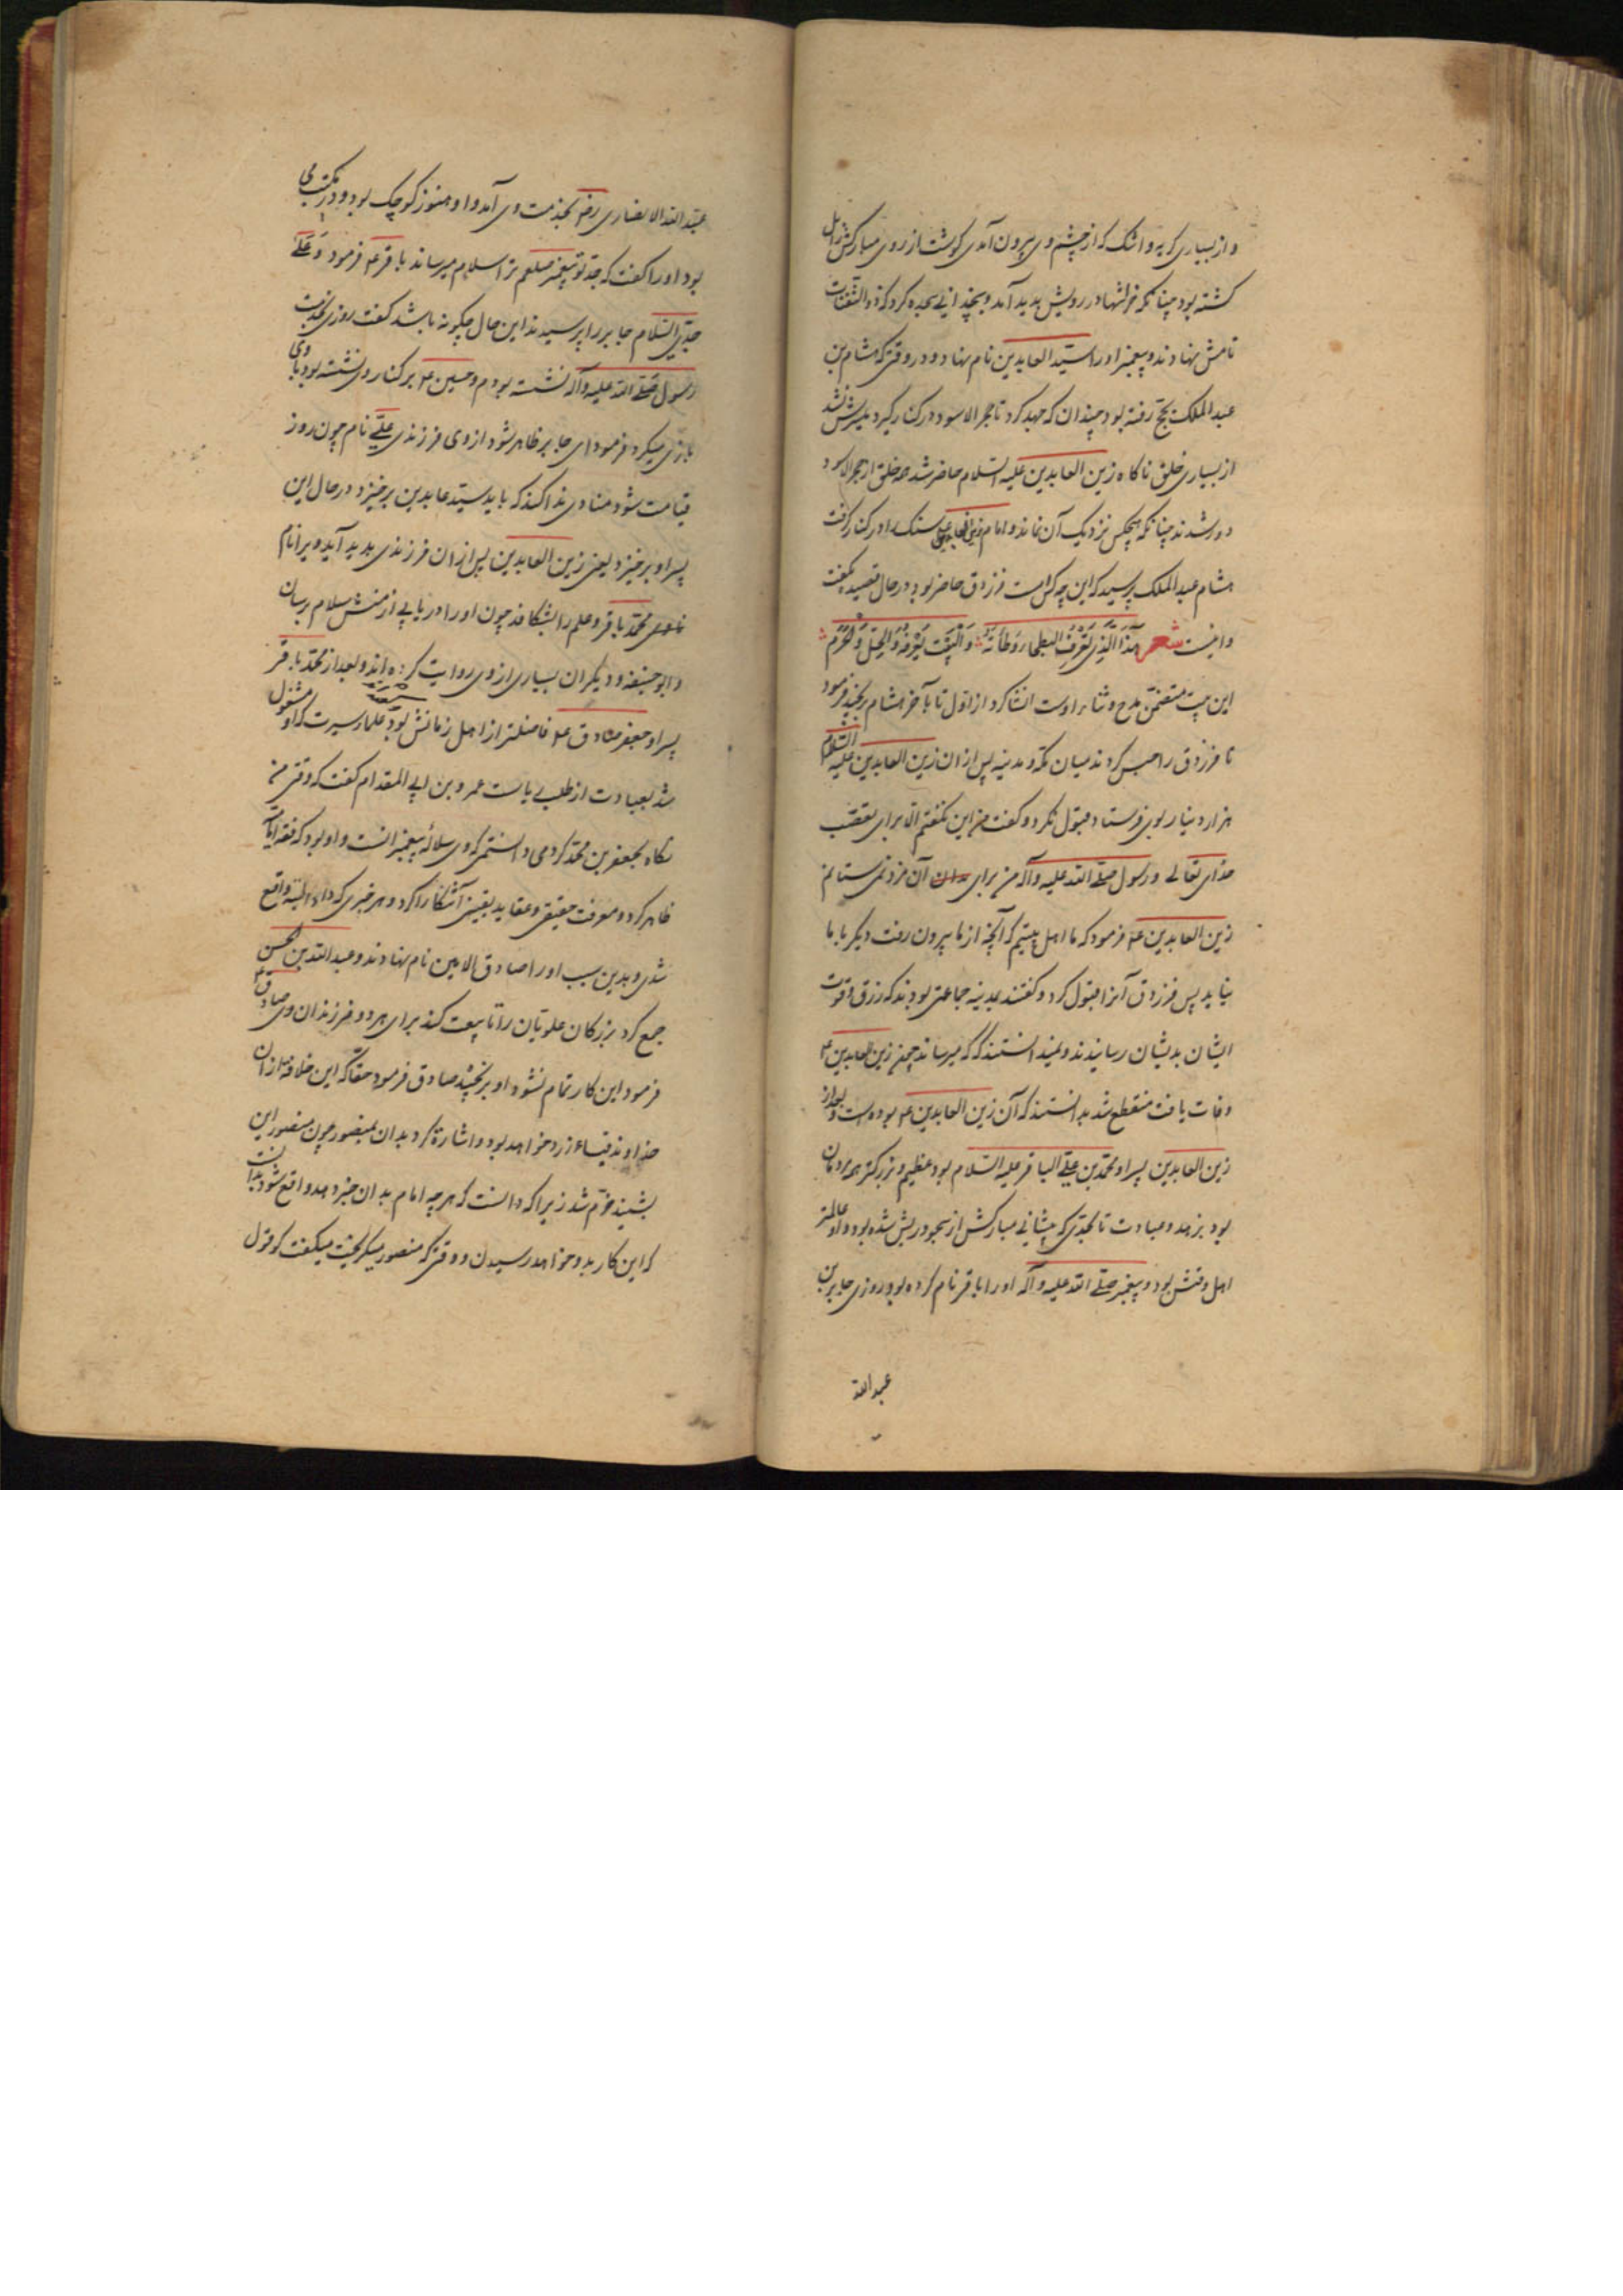 و از بسیاری کریه و اشک که از چشم وی بیرون آمدی کوشت از روی مبارکش زایل
کشته بود چنانکه خراشها در رویش پدید آمد و بچندانی سجده کرد که ذو الثفنات
نامش نهادند و پیغمبر اورا سید العابدین نام نهاد و در وقتی که هشام بن
عبد الملک بحج رفته بود چندان که جهد کرد تا حجر الاسود در کنار گیرد میسرش نشد
از بسیاری خلق ناکاه زین العابدین علیه السلام حاضر شد همه خلق از حجر الاسود
دور شدند چنانکه هیچکس نزدیک آن نماند و امام زین العابدین سنک را در کنار کرفت
هشام عبد الملک پرسید که این چه کس است فرزدق حاضر بود در حال قصیده بکفت
و اینست شعر هذا الذی تعرف البطحاء وطأته و البیت یعرفه و الحل و الحرم
این بیت متضمن مدح و ثناء اوست انشا کرد از اول تا بآخر هشام برنجید و فرمود
تا فرزدق را حبس کردند میان مکه و مدینه پس از ان زین العابدین علیه السلام
هزار دینار بوی فرستاد قبول نکرد و کفت من این نکفتم الا برای تعصب
خدای تعالی و رسول صلی الله علیه و آله من برای آن مزد نمی ستانم
زین العابدین ع فرمود که ما اهل بیتیم که آنچه از ما بیرون رفت دیکر با ما
نیاید پس فرزدق آنرا قبول کرد و کفتند بمدینه جماعتی بودند که رزق و قوت
ایشان بدیشان رسانیدند و نمیدانستند که که میرساند چون زین العابدین ع
وفات یافت منقطع شد بدانستند که آن زین العابدین ع بوده است و بعد از
زین العابدین پسر او محمد بن علی الباقر علیه السلام بود عظیم و بزرکتر همه مردمان
بود بزهد و عبادت تا بحدی که پیشانی مبارکش از سجود ریش شده بود و او عالمتر
اهل وقتش بود و پیغمبر صلی الله علیه و آله او را باقر نام کرده بود روزی جابر بن
عبد الله
عبد الله الانصاری رض بخدمت وی آمد و او هنوز کوچک بود و در مکتب می
بود او را کفت که جد تو پیغمبر صلعم ترا سلام میرساند باقر ع فرمود و علی
جدی السلام جابر را پرسیدند این حال چکونه باشد کفت روزی بخدمت
رسول صلی الله علیه و آله نشسته بودم و حسین ع بر کنار وی نشسته بود با وی
بازی میکرد فرمود ای جابر ظاهر شود از وی فرزندی علی نام چون روز
قیامت شود منادی ندا کند که باید سید عابدین برخیزد در حال این
پسر او برخیزد یعنی زین العابدین پس از ان فرزندی پدید آید ویرا نام
محمد باقر و علم را بشکافد چون او را دریابی از منش سلام برسان
و ابو حنیفه و دیکران بسیاری از وی روایت کرده اند و بعد از محمد باقر
پسر او جعفر صادق ع فاضلتر از اهل زمانش بود علماء سیرت که او مشغول
شد بعبادت از طلب ریاست عمرو بن ابی المقدام کفت که وقتی من
نکاه بجعفر بن محمد کردمی دانستمی که وی سلاله پیغمبرانست و او بود که فقه امامیه
ظاهر کرد و معرفت حقیقی و عقاید یقینی آشکارا کرد و هر خبری که داد البته واقع
شدی و بدین سبب او را صادق الامین نام نهادند و عبد الله بن الحسن
جمع کرد بزرکان علویان را تا بیعت کند برای هر دو فرزندان وی صادق ع
فرمود این کار تمام نشود او برنجید صادق فرمود حقا که این خلافت از ان
خداوند قباء زرد خواهد بود و اشارة کرد بدان بمنصور چون منصور این
بشنید خرم شد زیرا که دانست که هر چه امام بدان خبر دهد واقع شود بدانست
که این کار بدو خواهد رسیدن و وقتی که منصور میکریخت میکفت کو قول